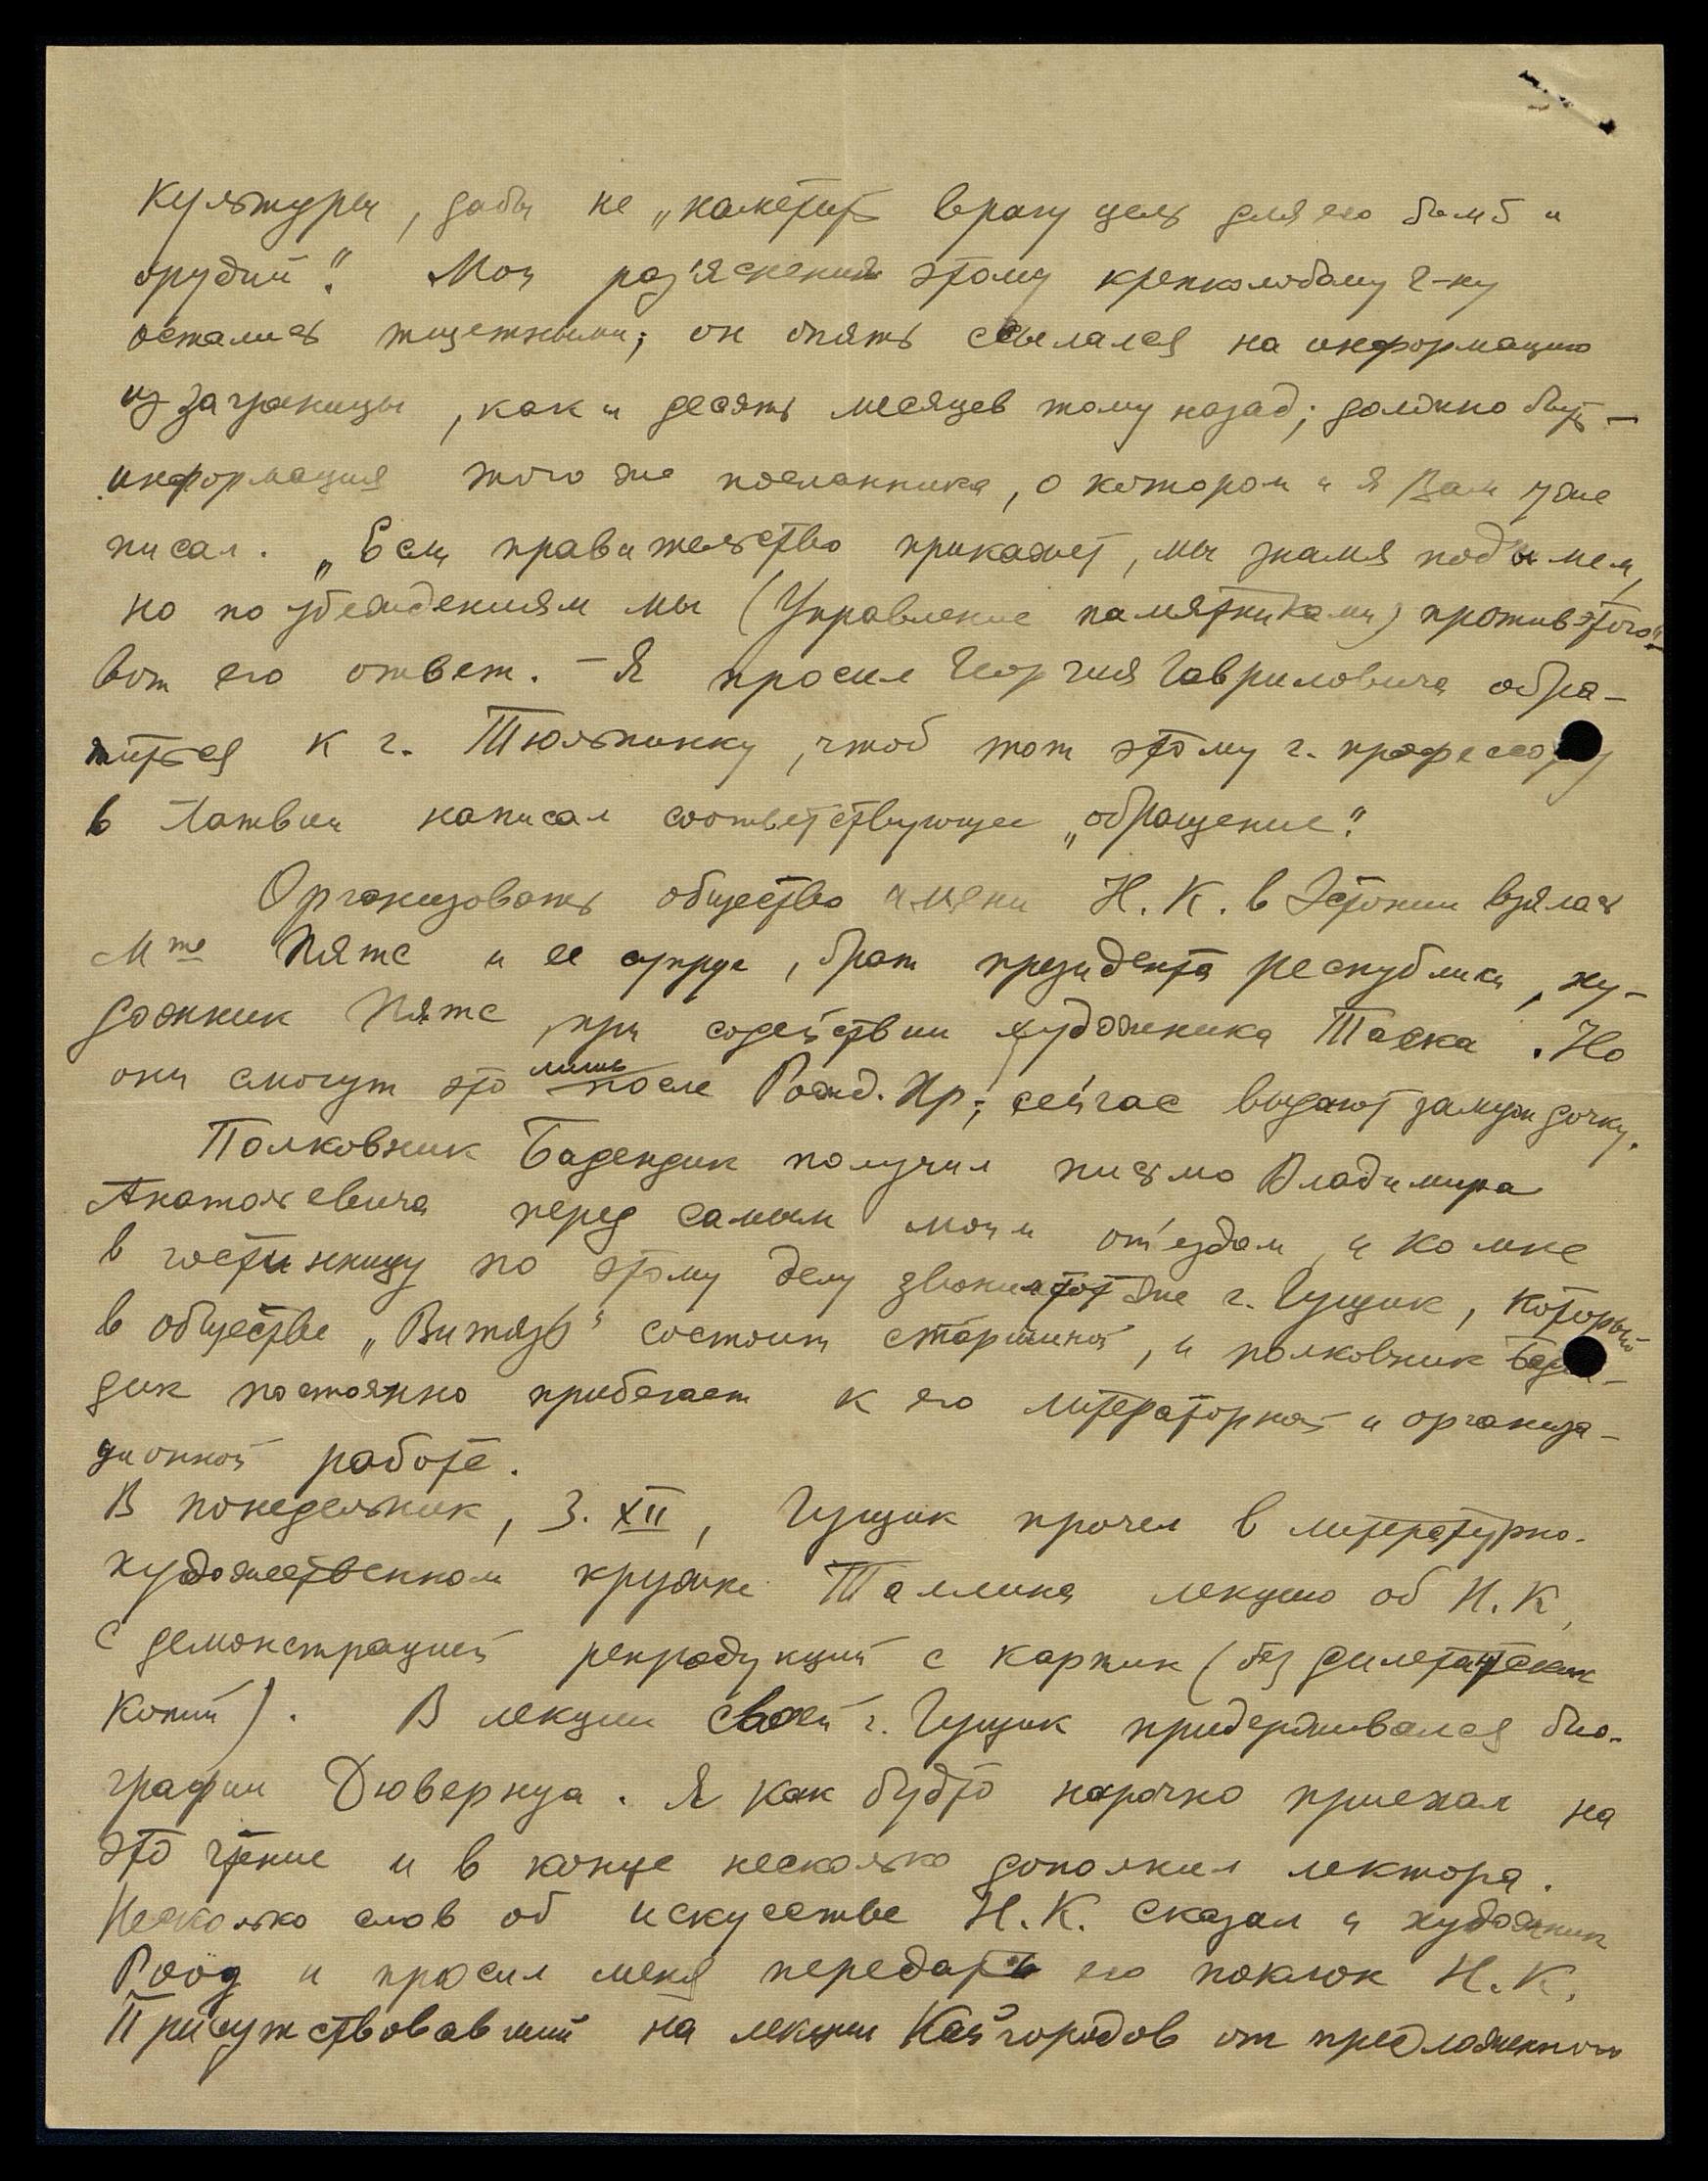 культуры, дабы не „наметить врагу цель для его бомб и
орудий". Мои раз'яснения этому крепколобому г-ну
остались тщетными; он опять ссылался на информацию
из заграницы, как и десять месяцев тому назад; должно быть –
информация того же посланника, о котором и я Вам уже
писал. „Если правительство прикажет, мы знамя подымем,
но по убеждениям мы (Управление памятниками) против этого" –
вот его ответ. – Я просил Георгия Гавриловича обра-
титься к г. Тюльпинку, чтоб тот этому г. профессору
в Латвии написал соответствующее „обращение".
Организовать общество имени Н. К. в Эстонии взялась
Mme Пятс и ее супруг, брат президента республики, ху-
дожник Пятс, при содействии художника Таска. Но
они смогут это лишь после Рожд. Хр.; сейчас выдают замуж дочку.
Полковник Бадендик получил письмо Владимира
Анатольевича перед самым моим от'ездом, и ко мне
в гостинницу по этому делу звонил тот же г. Гущик, который
в обществе „Витязь" состоит старшиной, и полковник Баден-
дик постоянно прибегает к его литераторной и организа-
ционной работе.
В понедельник, 3. XII, Гущик прочел в литературно-
художественном кружке Таллина лекцию об Н. К.,
с демонстрацией репродукций с картин (без дилетантских
копий). В лекции своей г. Гущик придерживался био-
графии Дювернуа. Я как будто нарочно приехал на
это чтение и в конце несколько дополнил лектора.
Несколько слов об искусстве Н. К. сказал и художник
Роод и просил меня передать его поклон Н. К.
Присутствовавший на лекции Кайгородов от предложенного